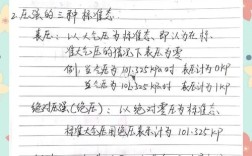 2. 压强的三种标准态
表压：以大气压为标准态，即认为在标
准大气压的情况下表压为零
例，当气压为 101.325 kpa时 表压计为0kp
当气压为 时 表压计为 kp
绝对压强(绝压)：以绝对零压为标准态。
标准大气压用绝压表示计为 101.325